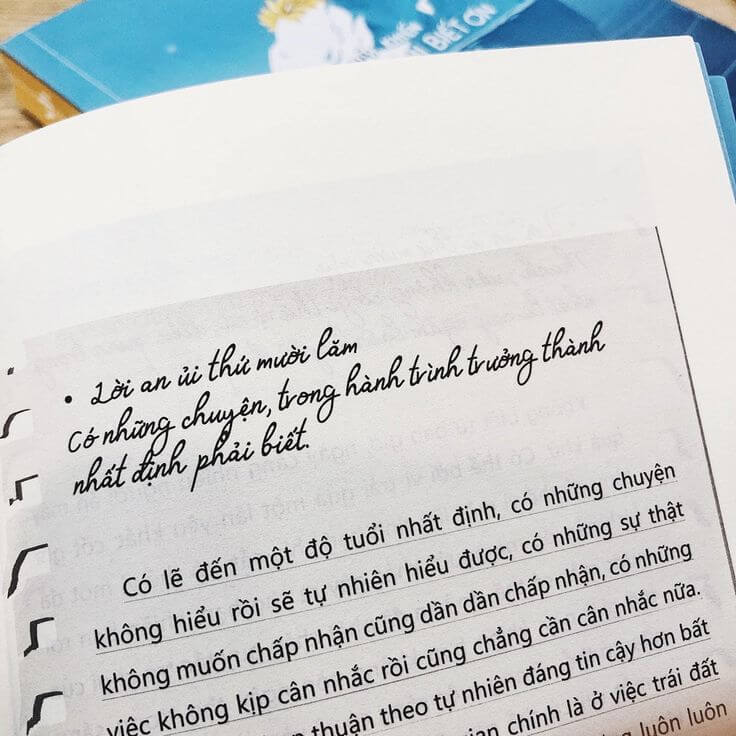 BIẾT ƠN
• Lời an ủi thứ mười lăm
Có những chuyện, trong hành trình trưởng thành
nhất định phải biết.
Có lẽ đến một độ tuổi nhất định, có những chuyện
không hiểu rồi sẽ tự nhiên hiểu được, có những sự thật
không muốn chấp nhận cũng dần dần chấp nhận, có những
việc không kịp cân nhắc rồi cũng chẳng cần cân nhắc nữa.
thuận theo tự nhiên đáng tin cậy hơn bất
chính là ở việc trái đất
luôn luôn